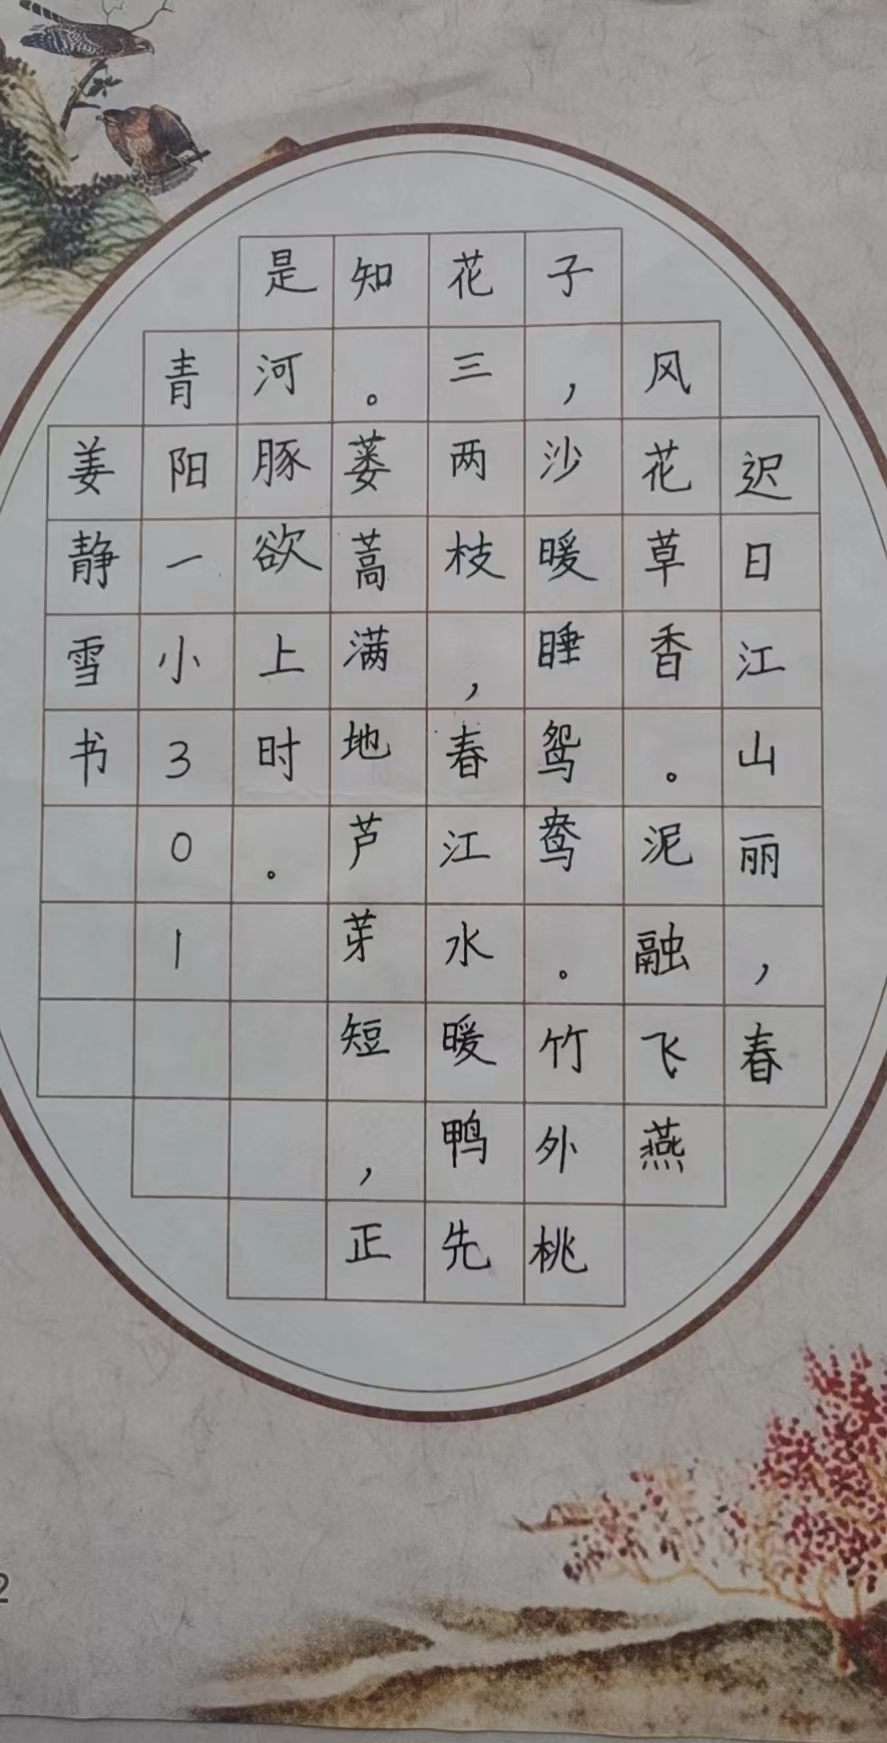 迟日江山丽，春
风花草香。泥融飞燕
子，沙暖睡鸳鸯。竹外桃
花三两枝，春江水暖鸭先
知。蒌蒿满地芦芽短，正
是河豚欲上时。
青阳一小301
姜静雪书
2